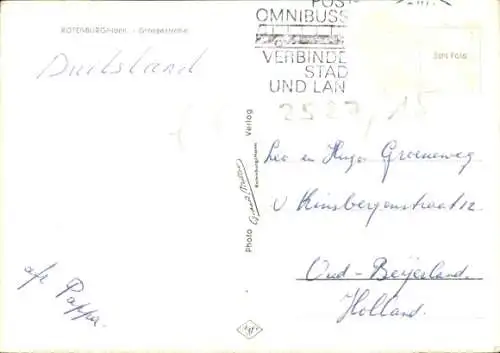 ROTENBURG/Hann. - Großestraße
POST
OMNIBUSS
VERBINDE
STAD
UND LAN
Echt Foto
Duitsland
2527/15
Photo Verlag
Rotenburg/Hann.
Leo en Hugo Groeneweg
v Kinsbergenstraat 12
Oud-Beijerland
Holland.
a/z Pappa.